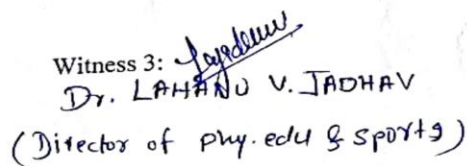 Witness 3:
Dr. LAHANU V. JADHAV
(Director of phy. edu & sports)